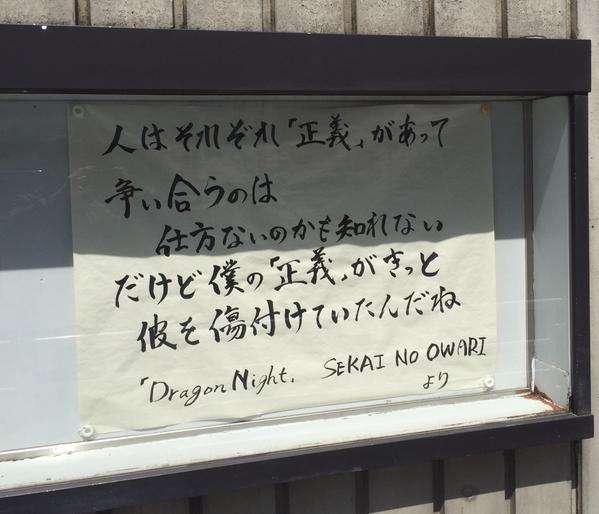 人はそれぞれ「正義」があって
争い合うのは
仕方ないのかも知れない
だけど僕の「正義」がきっと
彼を傷付けていたんだね
「Dragon Night」 SEKAI NO OWARI
より